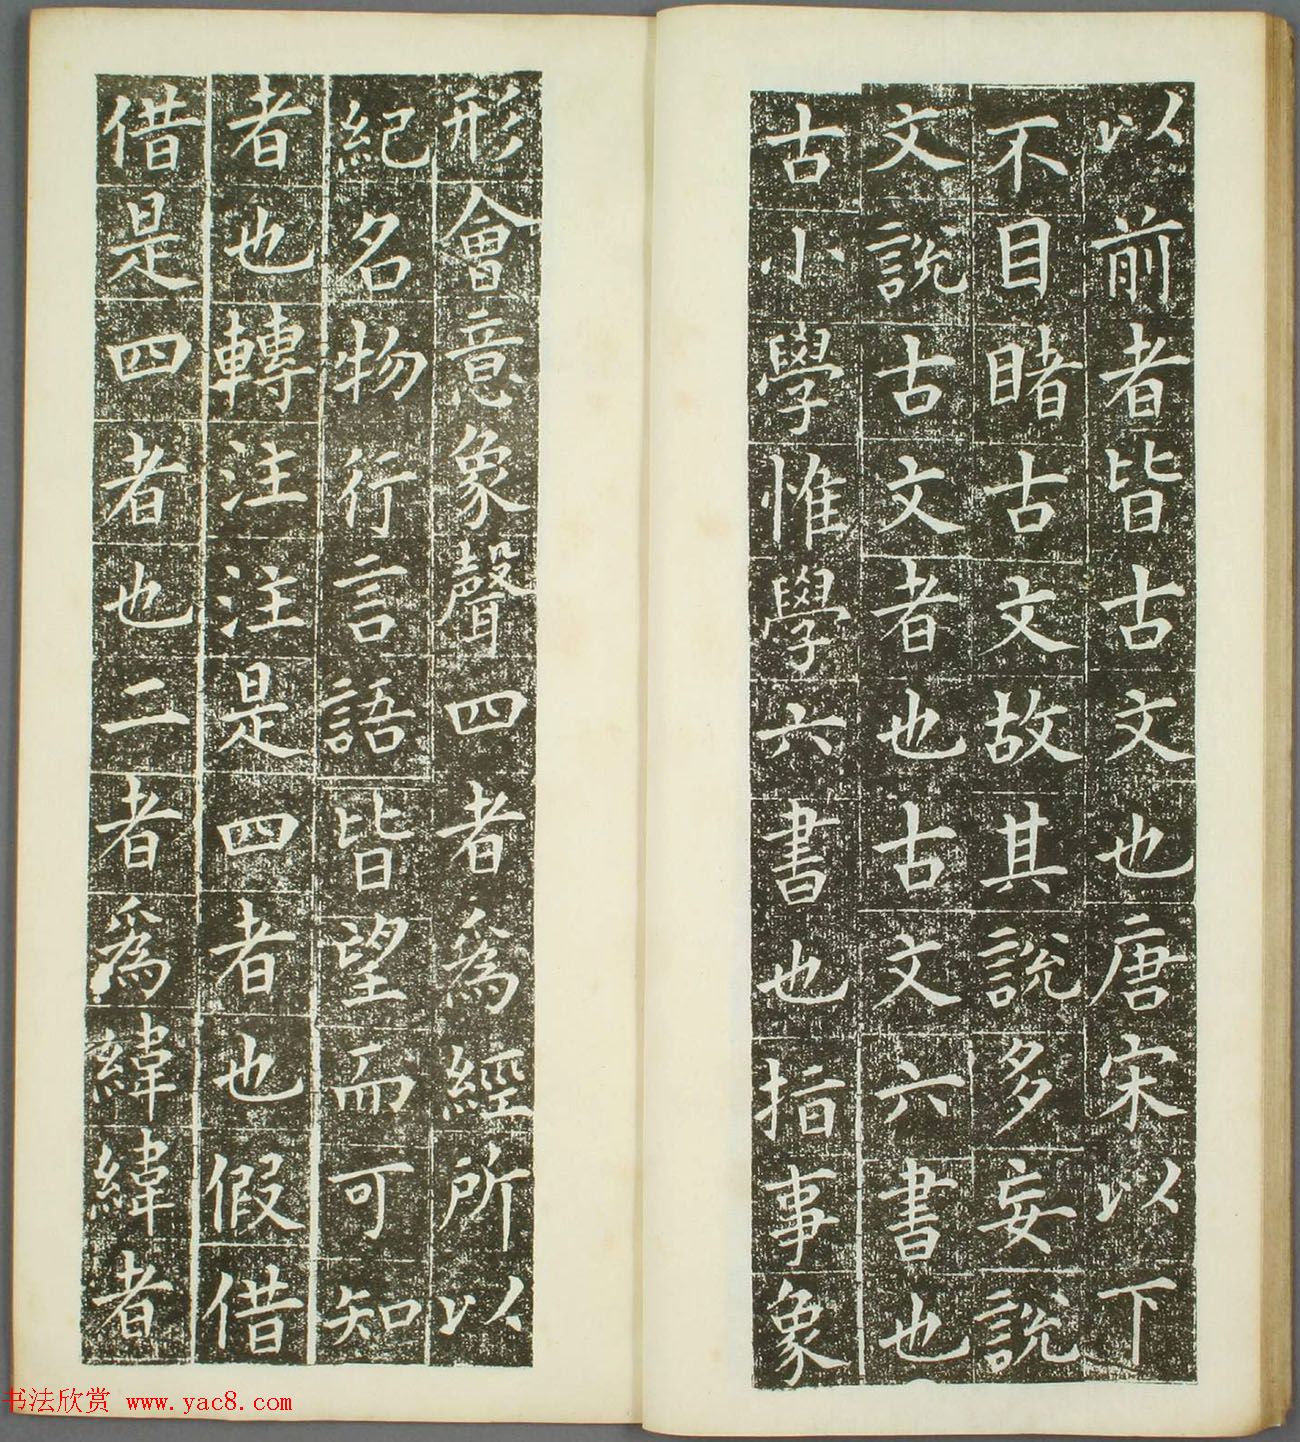 以前者皆古文也唐宋以下
不目睹古文故其說多妄說
文說古文者也古文六書也
古小學惟學六書也指事象
形會意象聲四者爲經所以
紀名物行言語皆望而可知
者也轉注注是四者也假借
借是四者也二者爲緯緯者
书法欣赏 www.yac8.com